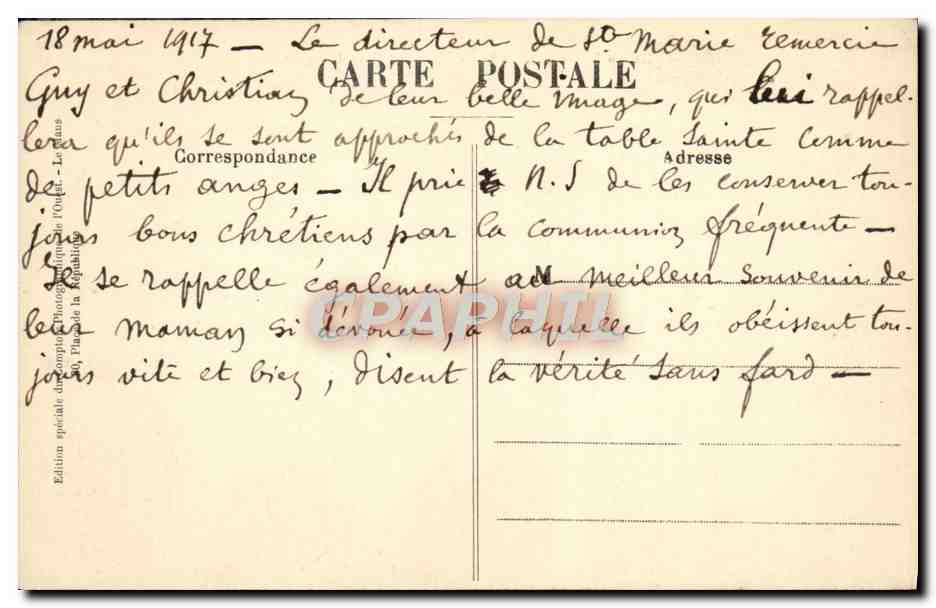 18 mai 1917 — Le directeur de Ste Marie remercie
CARTE POSTALE
Guy et Christian de leur belle image, qui lui rappel-
lera qu'ils se sont approchés de la table sainte comme
Correspondance
Adresse
de petits anges — Il prie N. S de les conserver tou-
jours bons chrétiens par la communion fréquente —
Il se rappelle également au meilleur souvenir de
leur maman si dévouée, à laquelle ils obéissent tou-
jours vite et bien, disent la vérité sans fard —
CPAPHIL
Edition spéciale du Comptoir Photographique de l'Ouest. - Le Mans
Place de la République